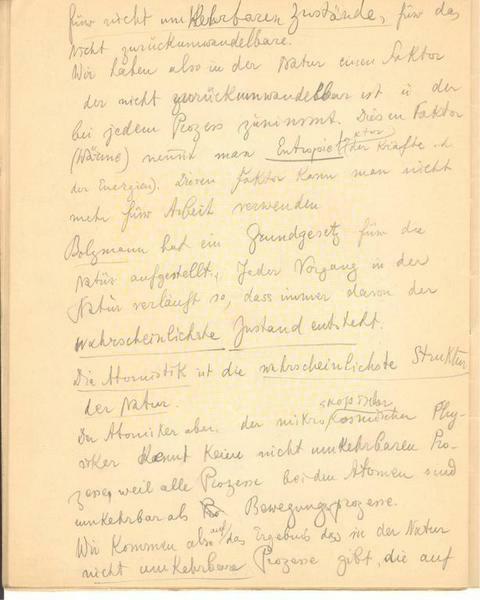 für nicht umkehrbaren Zustände, für das
nicht zurückumwandelbare.
Wir haben also in der Natur einen Faktor
der nicht zurückumwandelbar ist u der
bei jedem Prozess zunimmt. Diesen Faktor
(Wärme) nennt man Entropie (der Kräfte u.
der Energien). Diesen Faktor kann man nicht
mehr für Arbeit verwenden
Bolzmann hat ein Grundgesetz für die
Natur aufgestellt. Jeder Vorgang in der
Natur verläuft so, dass immer davon der
wahrscheinlichste Zustand entsteht.
Die Atomistik ist die wahrscheinlichste Struktur
der Natur.
Der Atomiker aber, der mikroskopischer Phy-
siker kennt keine nicht umkehrbaren Pro-
zesse, weil alle Prozesse bei den Atomen sind
umkehrbar als Bewegungsprozesse.
Wir kommen also auf das Ergebnis dass in der Natur
nicht umkehrbare Prozesse gibt, die auf